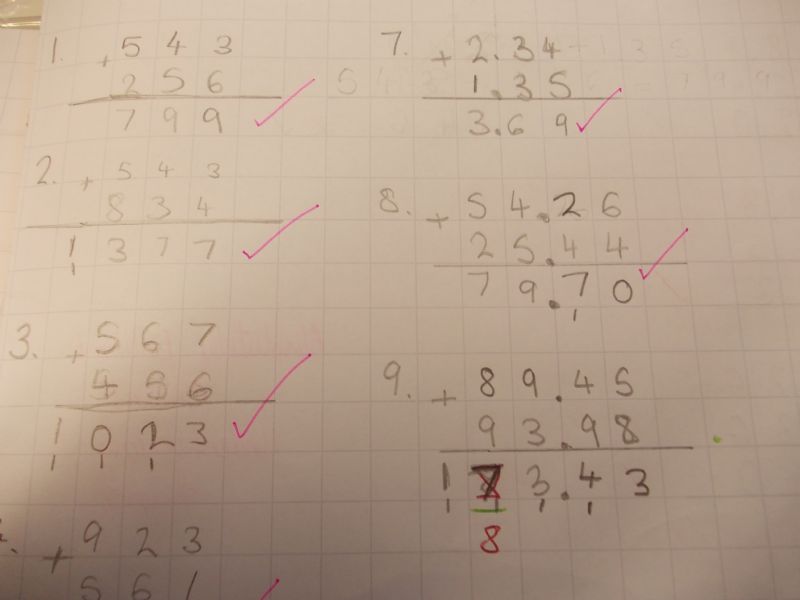 1. + 5 4 3
2 5 6
7 9 9
2. + 5 4 3
8 3 4
1 3 7 7
1
3. + 5 6 7
4 5 6
1 0 2 3
1 1 1
+ 9 2 3
5 6 1
7. + 2.34
1.35
3.69
8. + 54.26
25.44
79.70
1
9. + 89.45
93.98
173.43
1 1 1 1
8